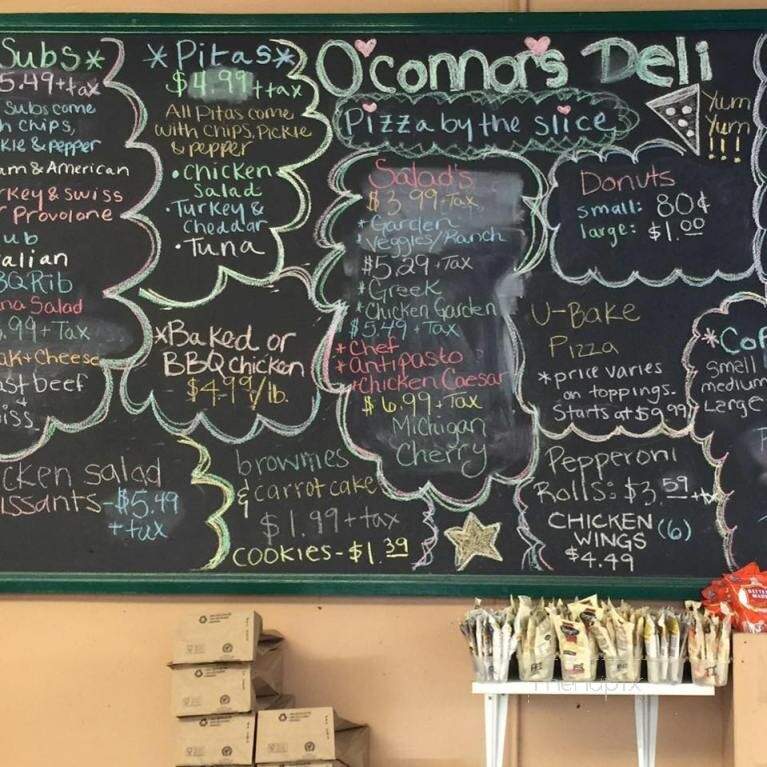 Subs*
5.49+tax
Subs come
h chips,
kle & pepper
am & American
rkey & Swiss
Provolone
ub
alian
BQ Rib
na Salad
.99+Tax
ak+Cheese
ast beef
&
iss
cken salad
issants-$5.49
+tax
*Pitas*
$4.99+tax
All Pitas come
with chips, Pickle
& pepper
•Chicken
Salad
•Turkey &
Cheddar
•Tuna
*Baked or
BBQ chicken
$4.99/lb.
brownies
& carrot cake
$1.99+tax
cookies-$1.39
O'connors Deli
Pizza by the slice
Yum
Yum
!!!
Salad's
$3.99+Tax
*Garden
*Veggies/Ranch
$5.29+Tax
*Greek
*Chicken Garden
$5.49+Tax
*Chef
*Antipasto
*Chicken Caesar
$6.99+Tax
Michigan
Cherry
Donuts
small: 80¢
large: $1.00
U-Bake
Pizza
*price varies
on toppings.
Starts at $9.99
Pepperoni
Rolls: $3.59+tx
CHICKEN (6)
WINGS
$4.49
*Cof
Small
medium
Large